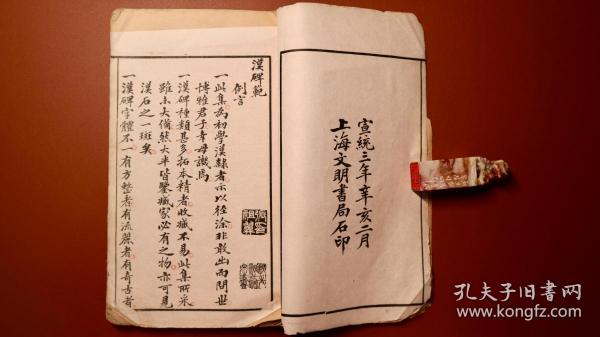 宣統三年辛亥二月
上海文明書局石印
漢碑範
例言
一此集為初學漢隸者示以徑涂非敢出而問世
博雅君子幸毋譏焉
一漢碑種類甚多拓本精者收藏不易此集所采
雖未大備然大半皆鑒藏家必有之物亦可見
漢石之一斑矣
一漢碑字體不一有方整者有流麗者有奇古者
孔夫子旧书网
www.kongfz.com